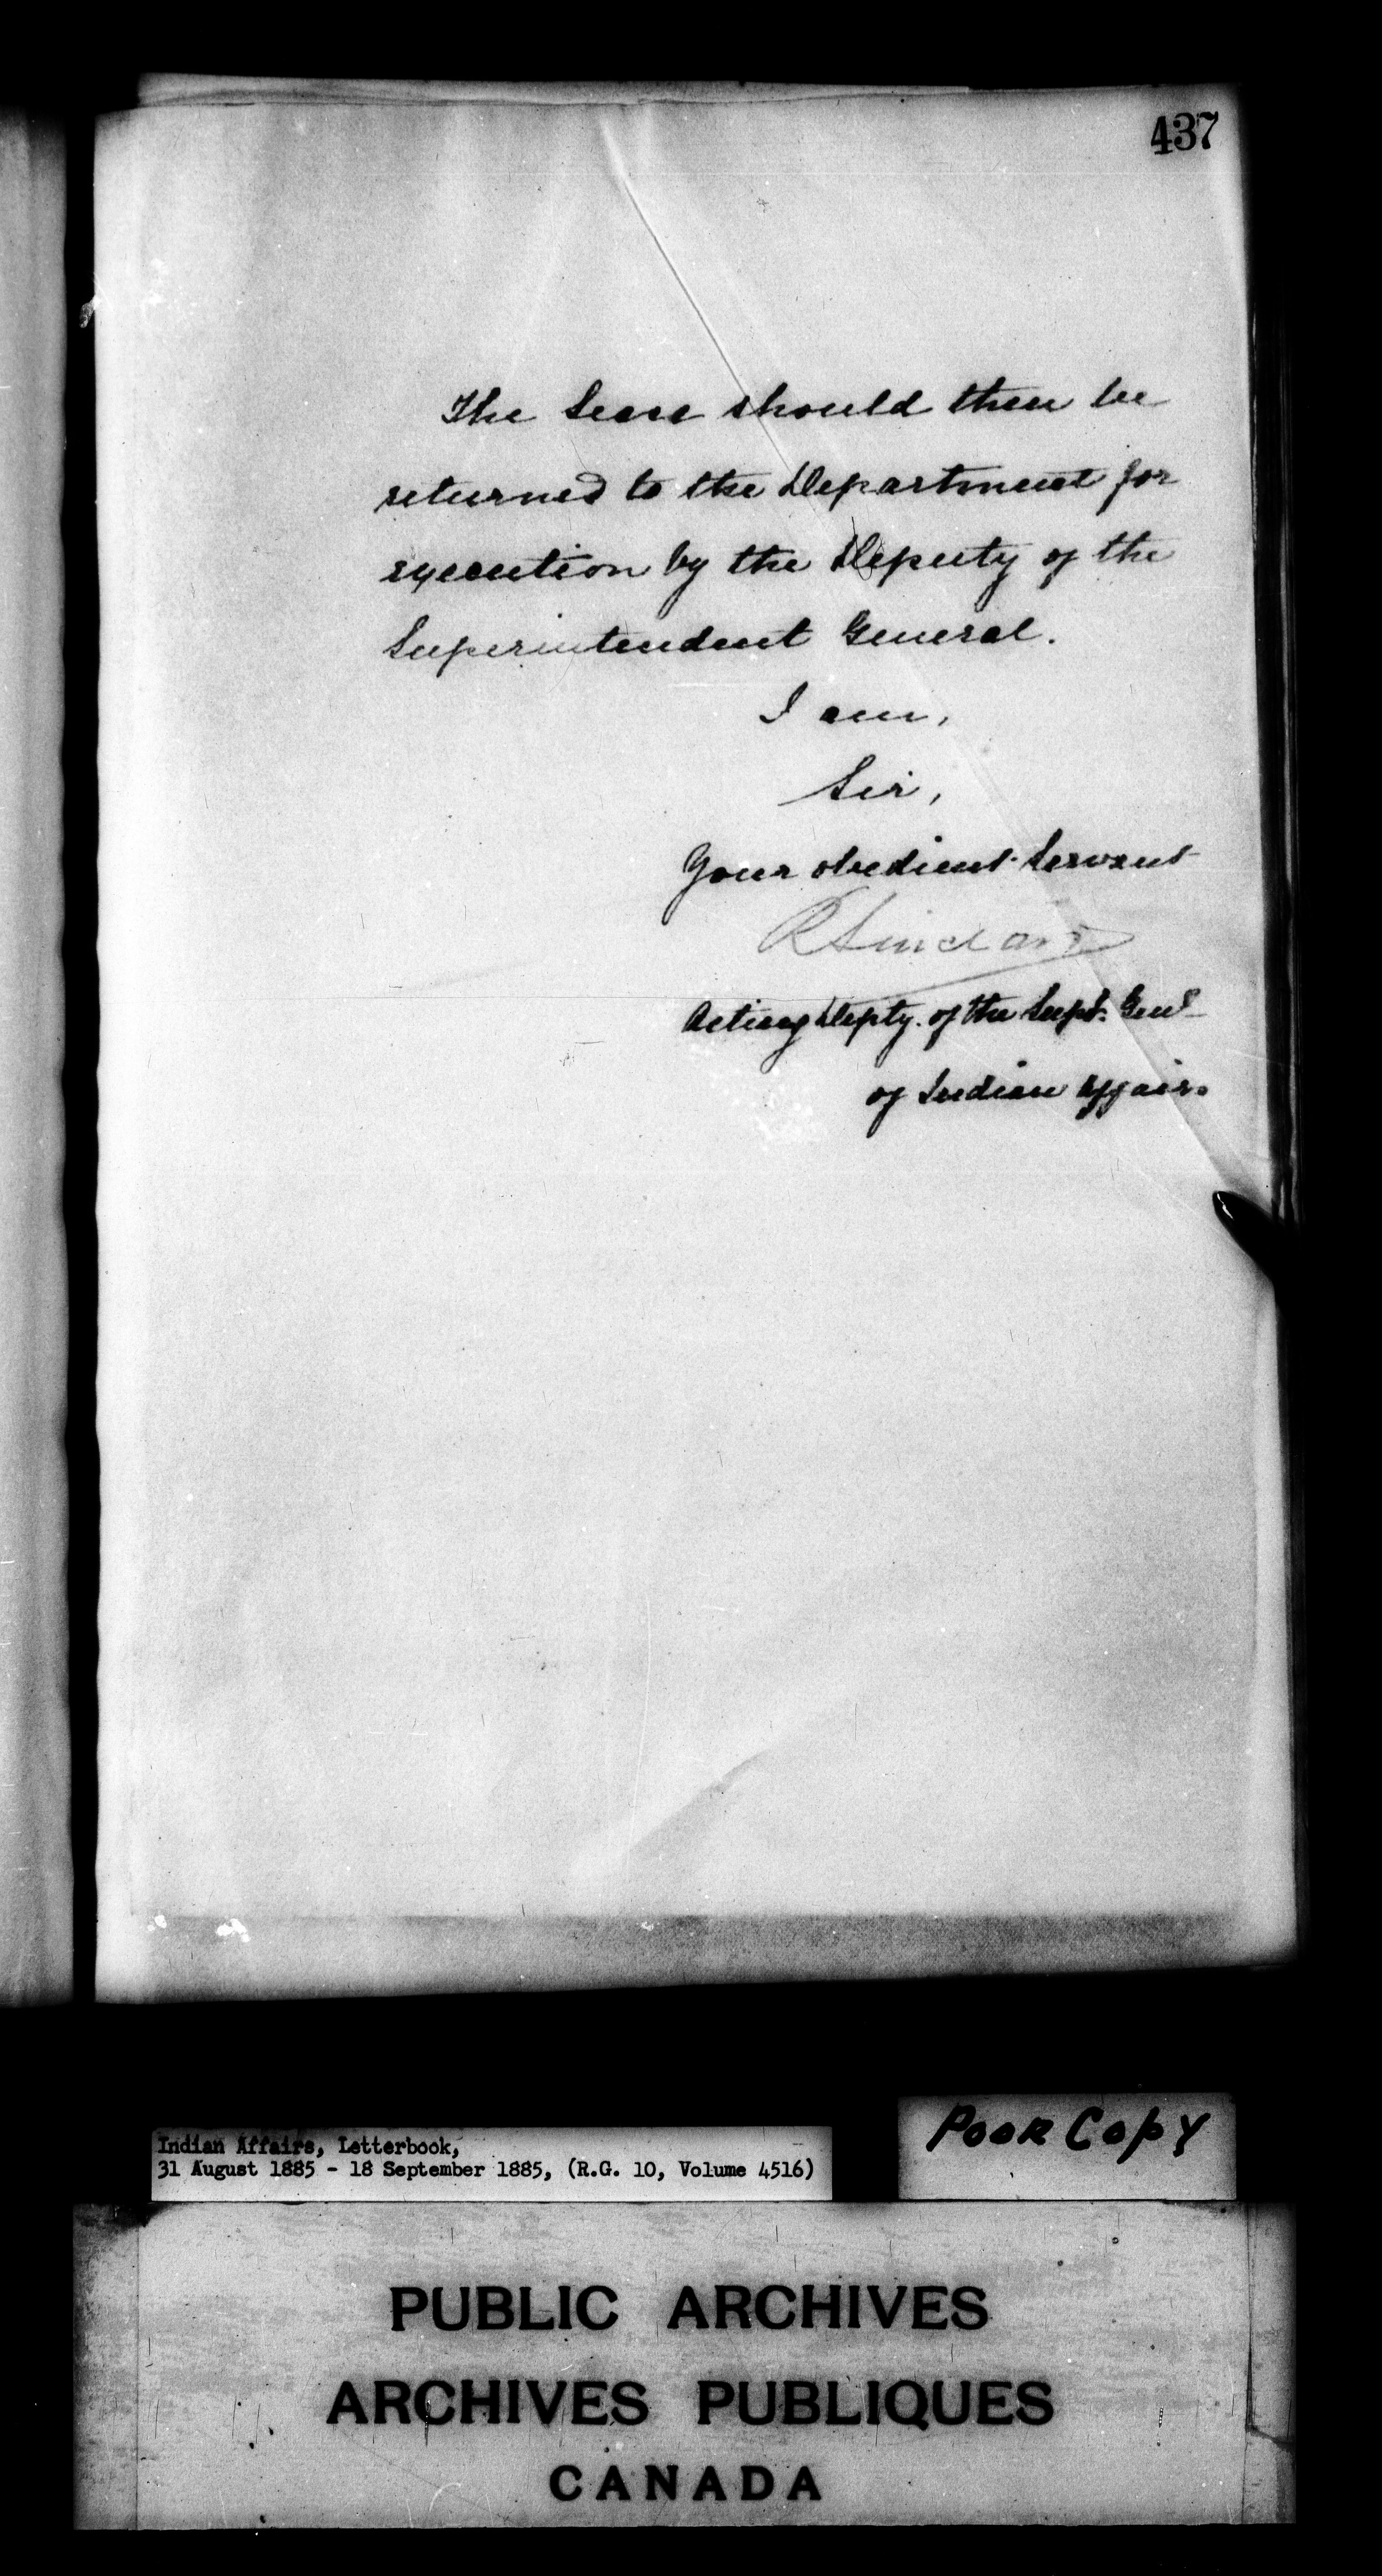 437
The Lease should then be
returned to the Department for
execution by the Deputy of the
Superintendent General.
I am,
Sir,
Your obedient Servant
R Sinclair
Acting Depty. of the Supt. Genl
of Indian Affairs
Indian Affairs, Letterbook,
31 August 1885 - 18 September 1885, (R.G. 10, Volume 4516)
POOR COPY
PUBLIC ARCHIVES
ARCHIVES PUBLIQUES
CANADA